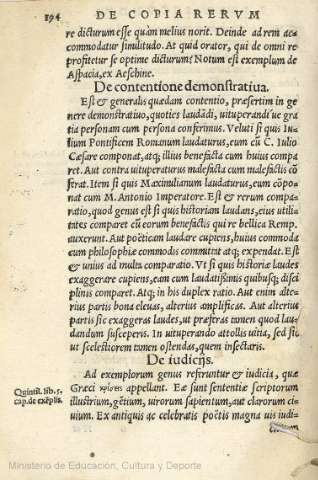 194 DE COPIA RERVM
re dicturum esse quàm melius norit. Deinde ad rem ac-
commodatur similitudo. At quid orator, qui de omni re
profitetur se optime dicturum? Notum est exemplum de
Aspacia, ex Aeschine.
De contentione demonstratiua.
Est & generalis quædam contentio, præsertim in ge
nere demonstratiuo, quoties laudādi, uituperandi'ue gra
tia personam cum persona conferimus. Veluti si quis Iu-
lium Pontificem Romanum laudaturus, eum cū C. Iulio
Cæsare componat, atq; illius benefacta cum huius compa
ret. Aut contra uituperaturus malefacta cum malefactis cō
ferat. Item si quis Maximilianum laudaturus, eum cōpo-
nat cum M. Antonio Imperatore. Est & rerum compa-
ratio, quod genus est si quis historiam laudans, eius utili-
tates comparet cū eorum benefactis qui re bellica Remp.
auxerunt. Aut poëticam laudare cupiens, huius commoda
cum philosophiæ commodis committat atq; expendat. Est
& unius ad multa comparatio. Vt si quis historiæ laudes
exaggerare cupiens, eam cum laudatissimis quibusq; disci
plinis comparet. Atq; in his duplex ratio. Aut enim alte-
rius partis bona eleuas, alterius amplificas. Aut alterius
partis sic exaggeras laudes, ut præferas tamen quod lau-
dandum susceperis. In uituperando attollis uitia, sed sic
ut scelestiorem tamen ostendas, quem insectaris.
De iudicijs.
Ad exemplorum genus referuntur & iudicia, quæ
Quintil. lib. 5.
Græci κρίσεις appellant. Eæ sunt sententiæ scriptorum
cap. de exēplis.
illustrium, gētium, uirorum sapientum, aut clarorum ci-
uium. Ex antiquis ac celebratis poëtis magna uis iudi-
Ministerio de Educación, Cultura y Deporte